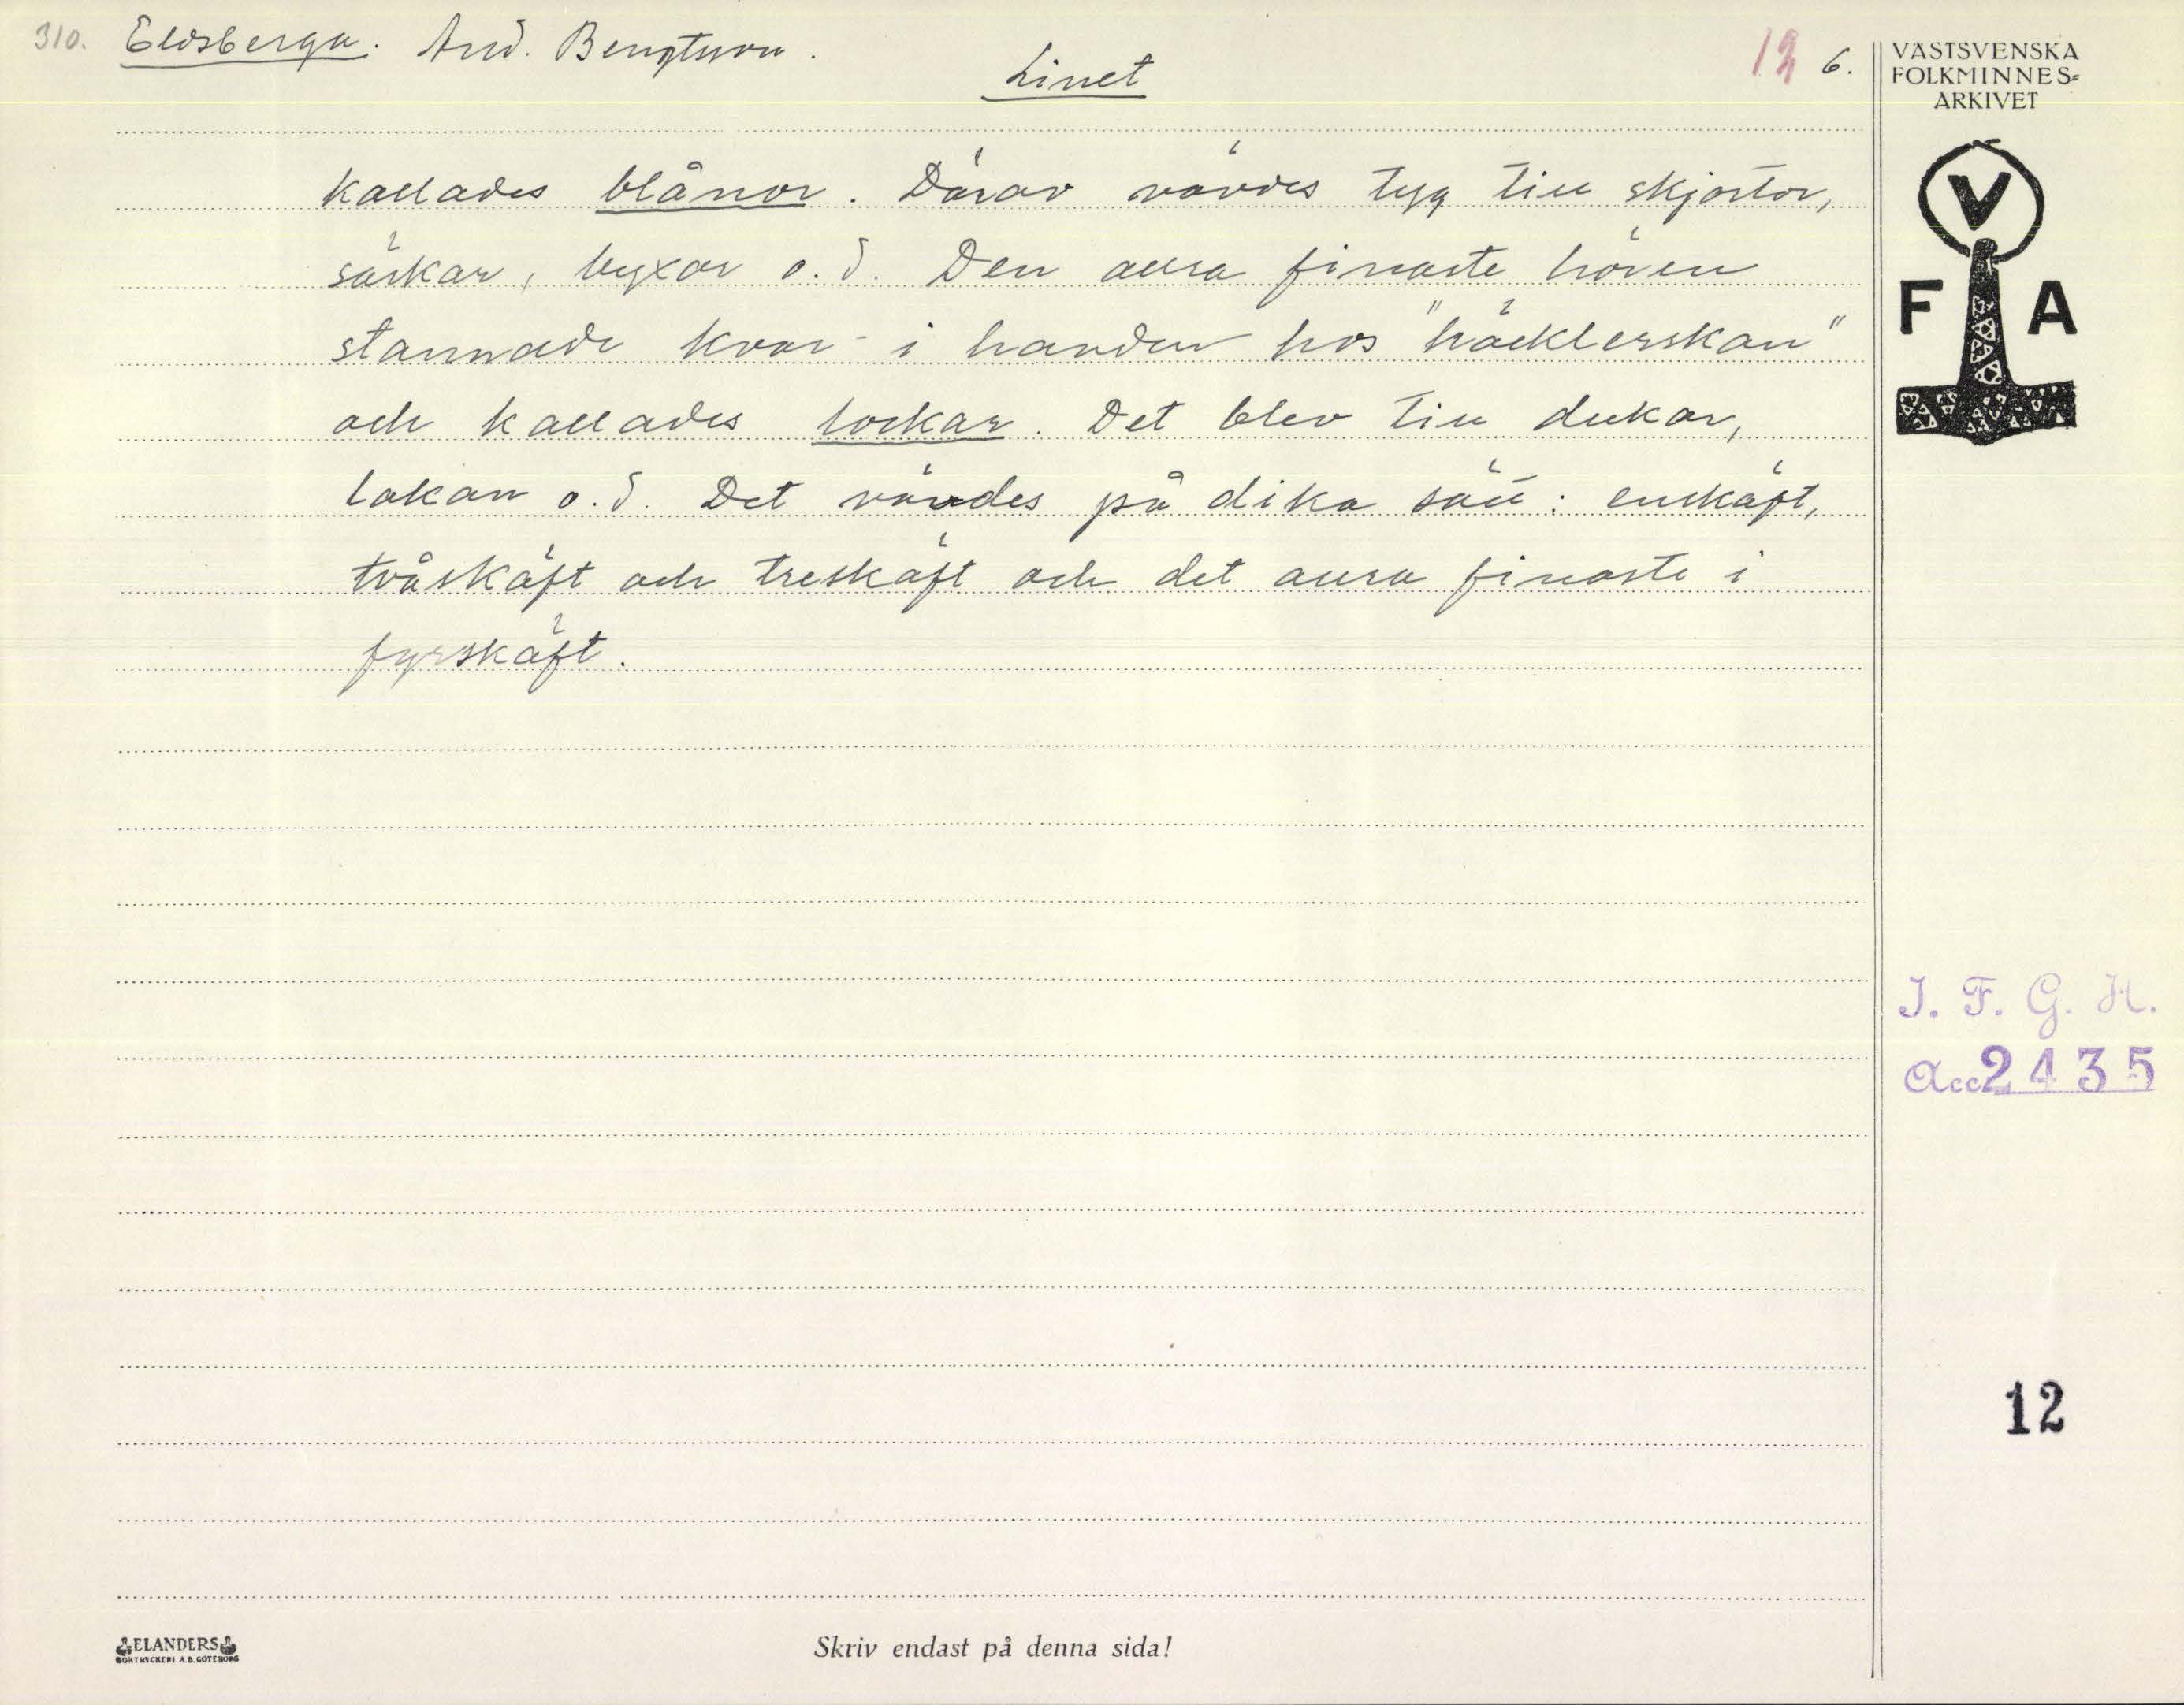 310. Eldsberga. And. Bengtsson. 12 6.
Linet
kallades blånor. Därav vävdes tyg till skjortor,
särkar, byxor o.d. Den allra finaste hören
stannade kvar i handen hos "häcklerskan"
och kallades lockar. Det blev till dukar,
lakan o.d. Det vävdes på olika sätt: enskäft,
tvåskäft och treskäft och det allra finaste i
fyrskäft.
VÄSTSVENSKA
FOLKMINNES=
ARKIVET
V
F A
I. F. G. H.
Acc 2435
12
ELANDERS
BOKTRYCKERI A.B. GÖTEBORG
Skriv endast på denna sida!